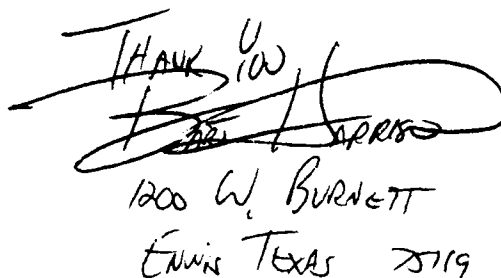 THANK YOU
HARRISO
1200 W. BURNETT
ENNIS TEXAS 75119